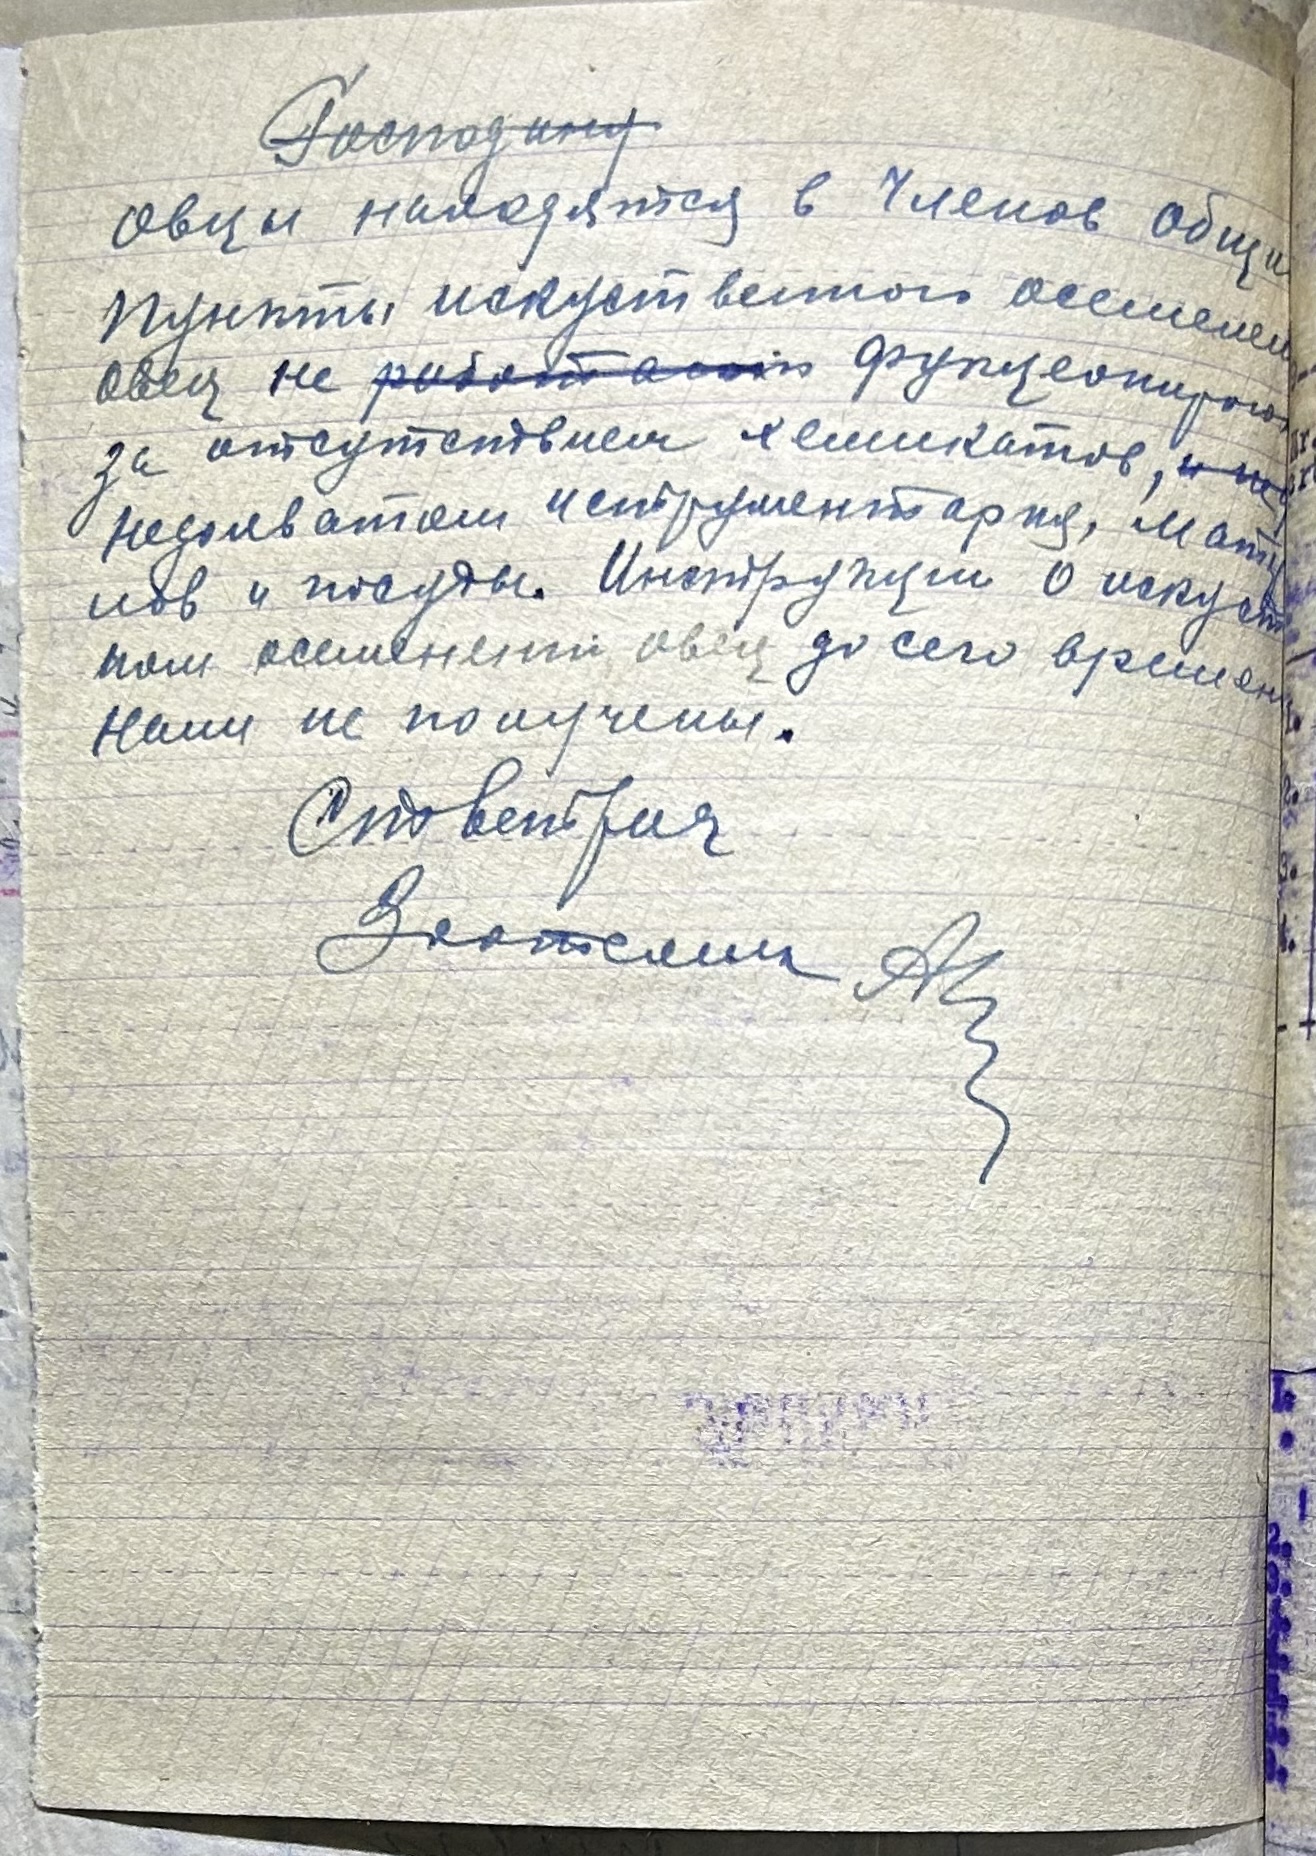 Господину
овцы находятся в Членов общи
Пункты искуственого осеменен
овец не работают функционирую
за отсутствием хемикатов, и не
недохватом иструментария, мату
лов и посуды. Инструкции о искуств
ном осеменении овец до сего времени
нами не получены.
Ст. Ветврач
Зоотехник